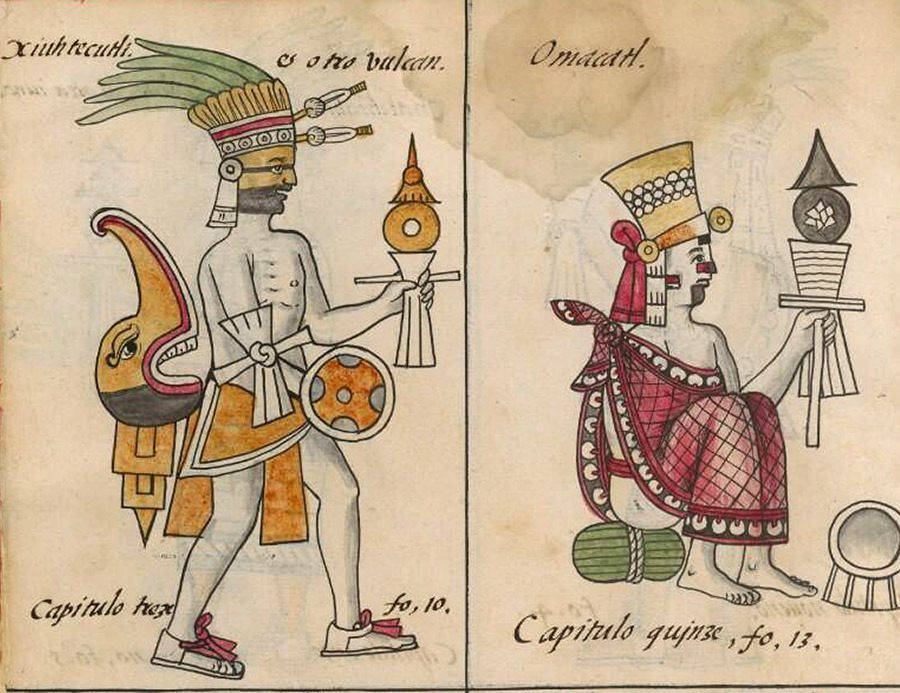 Xiuhtecutli.
es otro vulcan.
Capitulo treze
fo, 10.
Omacatl.
Capitulo qujnze, fo, 13.